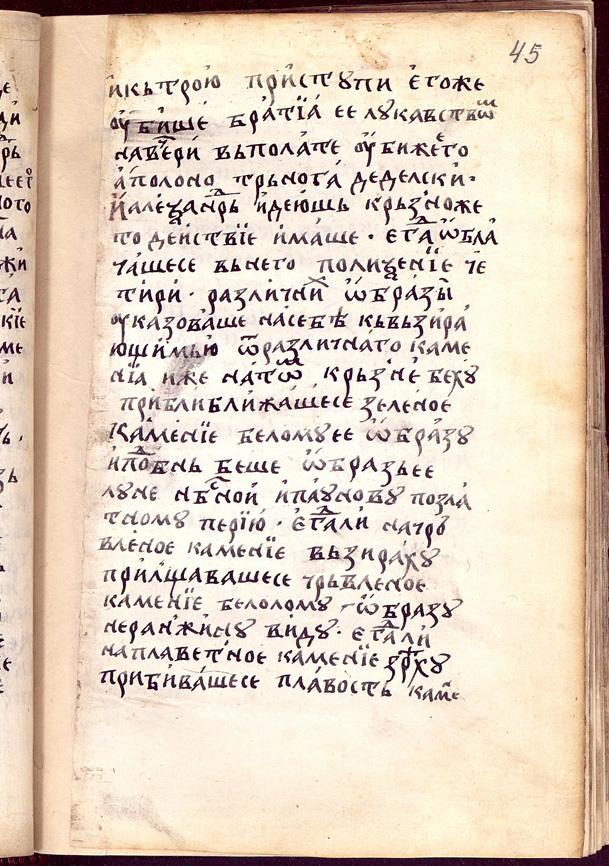 45
икьтрою пристꙋпи егоже
ꙋбише братїа ее лꙋкавствѡⷨ
навечери вьполате ꙋбижеⷢто
аполоно трьнога деделски·
Иалеѯанⷣрь идеюшь крьзноже
то деиствїе имаше· егⷣа ѡбла
чашесе вьнего полиѯенїе че
тири· различниⷯ ѡбразы
ꙋказоваше насебѣ кьвьзира
юшимью ѿразличнаго каме
нїа иже натѡⷨ крьзне бехꙋ
приближашесе зеленое
каменїе беломꙋее ѡбразꙋ
иподⷠнь беше ѡбразьее
лꙋне нбⷭной ипаꙋновꙋ позла
тномꙋ перїю· егⷣали начрь
вленое каменїе вьзирахꙋ
прилѣшавашесе чрьвленое
каменїе белоломꙋ ѡбразꙋ
неранжинꙋ видꙋ· егⷣали
наплаветное каменїе зрⷮхꙋ
прибивашесе плавость каме